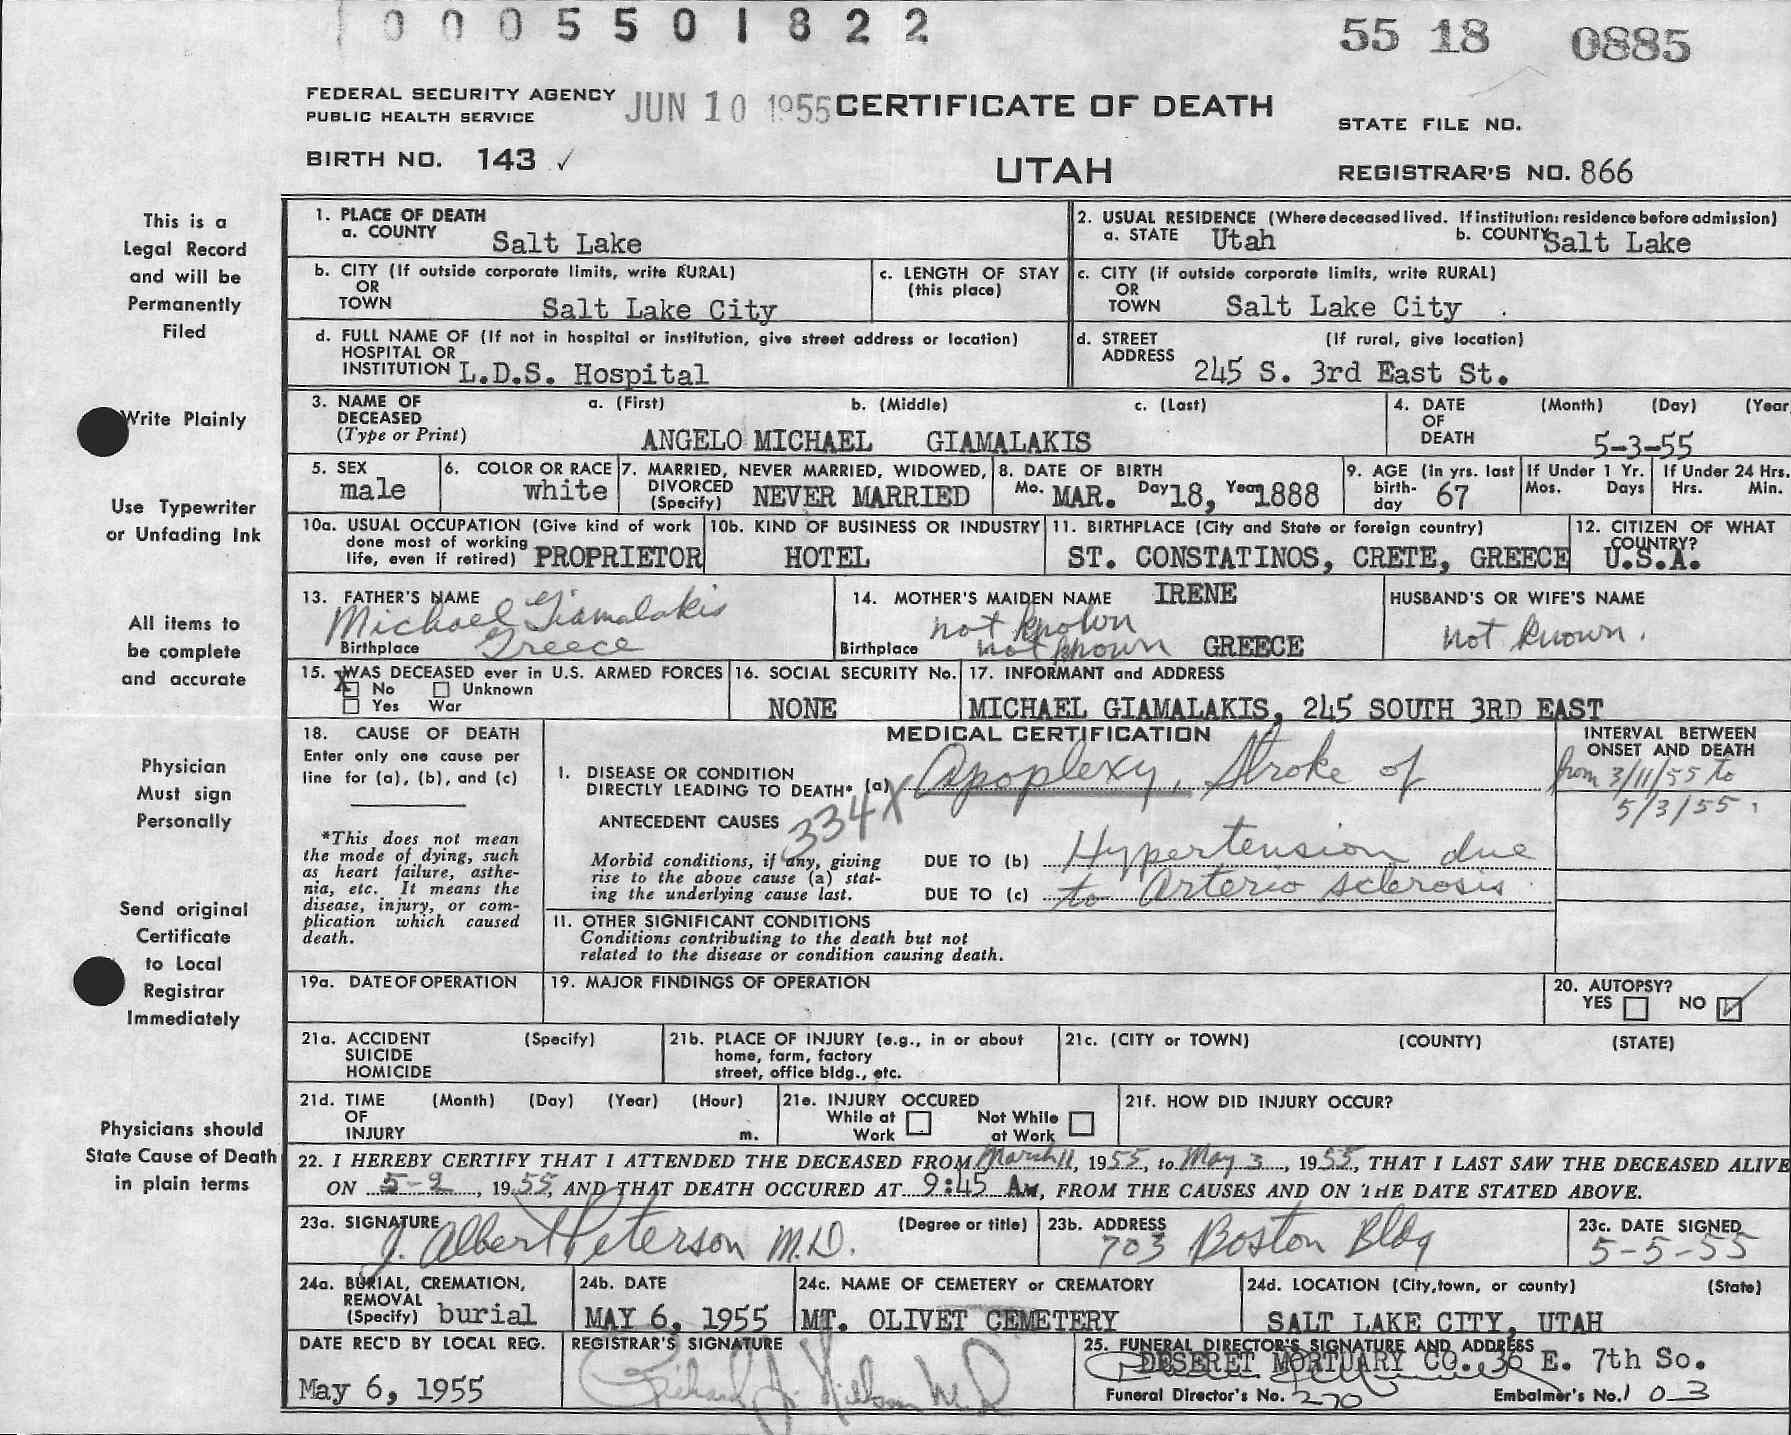 0005501822
55 18 0885
FEDERAL SECURITY AGENCY
PUBLIC HEALTH SERVICE
JUN 10 1955
CERTIFICATE OF DEATH
STATE FILE NO.
BIRTH NO. 143 ✓
UTAH
REGISTRAR'S NO. 866
This is a
Legal Record
and will be
Permanently
Filed
Write Plainly
Use Typewriter
or Unfading Ink
All items to
be complete
and accurate
Physician
Must sign
Personally
Send original
Certificate
to Local
Registrar
Immediately
Physicians should
State Cause of Death
in plain terms
1. PLACE OF DEATH
a. COUNTY Salt Lake
2. USUAL RESIDENCE (Where deceased lived. If institution: residence before admission)
a. STATE Utah b. COUNTY Salt Lake
b. CITY (If outside corporate limits, write RURAL)
OR
TOWN Salt Lake City
c. LENGTH OF STAY
(this place)
c. CITY (if outside corporate limits, write RURAL)
OR
TOWN Salt Lake City
d. FULL NAME OF (If not in hospital or institution, give street address or location)
HOSPITAL OR
INSTITUTION L.D.S. Hospital
d. STREET (If rural, give location)
ADDRESS 245 S. 3rd East St.
3. NAME OF a. (First) b. (Middle) c. (Last)
DECEASED
(Type or Print) ANGELO MICHAEL GIAMALAKIS
4. DATE (Month) (Day) (Year
OF
DEATH 5-3-55
5. SEX
male
6. COLOR OR RACE
white
7. MARRIED, NEVER MARRIED, WIDOWED,
DIVORCED
(Specify) NEVER MARRIED
8. DATE OF BIRTH
Mo. MAR. Day 18, Year 1888
9. AGE (In yrs. last
birth-
day 67
If Under 1 Yr.
Mos. Days
If Under 24 Hrs.
Hrs. Min.
10a. USUAL OCCUPATION (Give kind of work
done most of working
life, even if retired) PROPRIETOR
10b. KIND OF BUSINESS OR INDUSTRY
HOTEL
11. BIRTHPLACE (City and State or foreign country)
ST. CONSTATINOS, CRETE, GREECE
12. CITIZEN OF WHAT
COUNTRY?
U.S.A.
13. FATHER'S NAME
Michael Giamalakis
Birthplace Greece
14. MOTHER'S MAIDEN NAME IRENE
not known
Birthplace not known GREECE
HUSBAND'S OR WIFE'S NAME
not known.
15. WAS DECEASED ever in U.S. ARMED FORCES
X No Unknown
Yes War
16. SOCIAL SECURITY No.
NONE
17. INFORMANT and ADDRESS
MICHAEL GIAMALAKIS, 245 SOUTH 3RD EAST
18. CAUSE OF DEATH
Enter only one cause per
line for (a), (b), and (c)
*This does not mean
the mode of dying, such
as heart failure, asthe-
nia, etc. It means the
disease, injury, or com-
plication which caused
death.
MEDICAL CERTIFICATION
I. DISEASE OR CONDITION
DIRECTLY LEADING TO DEATH* (a) Apoplexy, Stroke of
334X
ANTECEDENT CAUSES
Morbid conditions, if any, giving
rise to the above cause (a) stat-
ing the underlying cause last.
DUE TO (b) Hypertension due
DUE TO (c) to Arterio sclerosis
INTERVAL BETWEEN
ONSET AND DEATH
from 3/11/55 to
5/3/55.
11. OTHER SIGNIFICANT CONDITIONS
Conditions contributing to the death but not
related to the disease or condition causing death.
19a. DATE OF OPERATION
19. MAJOR FINDINGS OF OPERATION
20. AUTOPSY?
YES NO ✓
21a. ACCIDENT (Specify)
SUICIDE
HOMICIDE
21b. PLACE OF INJURY (e.g., in or about
home, farm, factory
street, office bldg., etc.
21c. (CITY or TOWN) (COUNTY) (STATE)
21d. TIME (Month) (Day) (Year) (Hour)
OF
INJURY m.
21e. INJURY OCCURED
While at Not While
Work at Work
21f. HOW DID INJURY OCCUR?
22. I HEREBY CERTIFY THAT I ATTENDED THE DECEASED FROM March 11, 1955, to May 3, 1955, THAT I LAST SAW THE DECEASED ALIVE
ON 5-2, 1955, AND THAT DEATH OCCURED AT 9:45 Am, FROM THE CAUSES AND ON THE DATE STATED ABOVE.
23a. SIGNATURE (Degree or title)
J. Albert Peterson M.D.
23b. ADDRESS
703 Boston Bldg
23c. DATE SIGNED
5-5-55
24a. BURIAL, CREMATION,
REMOVAL
(Specify) burial
24b. DATE
MAY 6, 1955
24c. NAME OF CEMETERY or CREMATORY
MT. OLIVET CEMETERY
24d. LOCATION (City,town, or county) (State)
SALT LAKE CITY, UTAH
DATE REC'D BY LOCAL REG.
May 6, 1955
REGISTRAR'S SIGNATURE
Richard J. Nielson M.D.
25. FUNERAL DIRECTOR'S SIGNATURE AND ADDRESS
DESERET MORTUARY CO., 36 E. 7th So.
Funeral Director's No. 270 Embalmer's No. 103